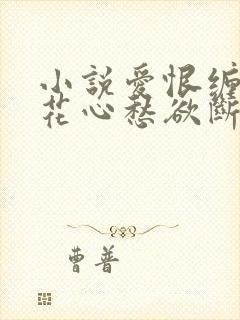 小說愛恨纏
花心愁欲斷
曹普